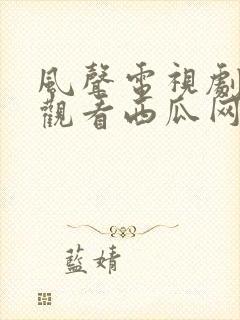 風聲電視劇
觀看西瓜网
藍婧